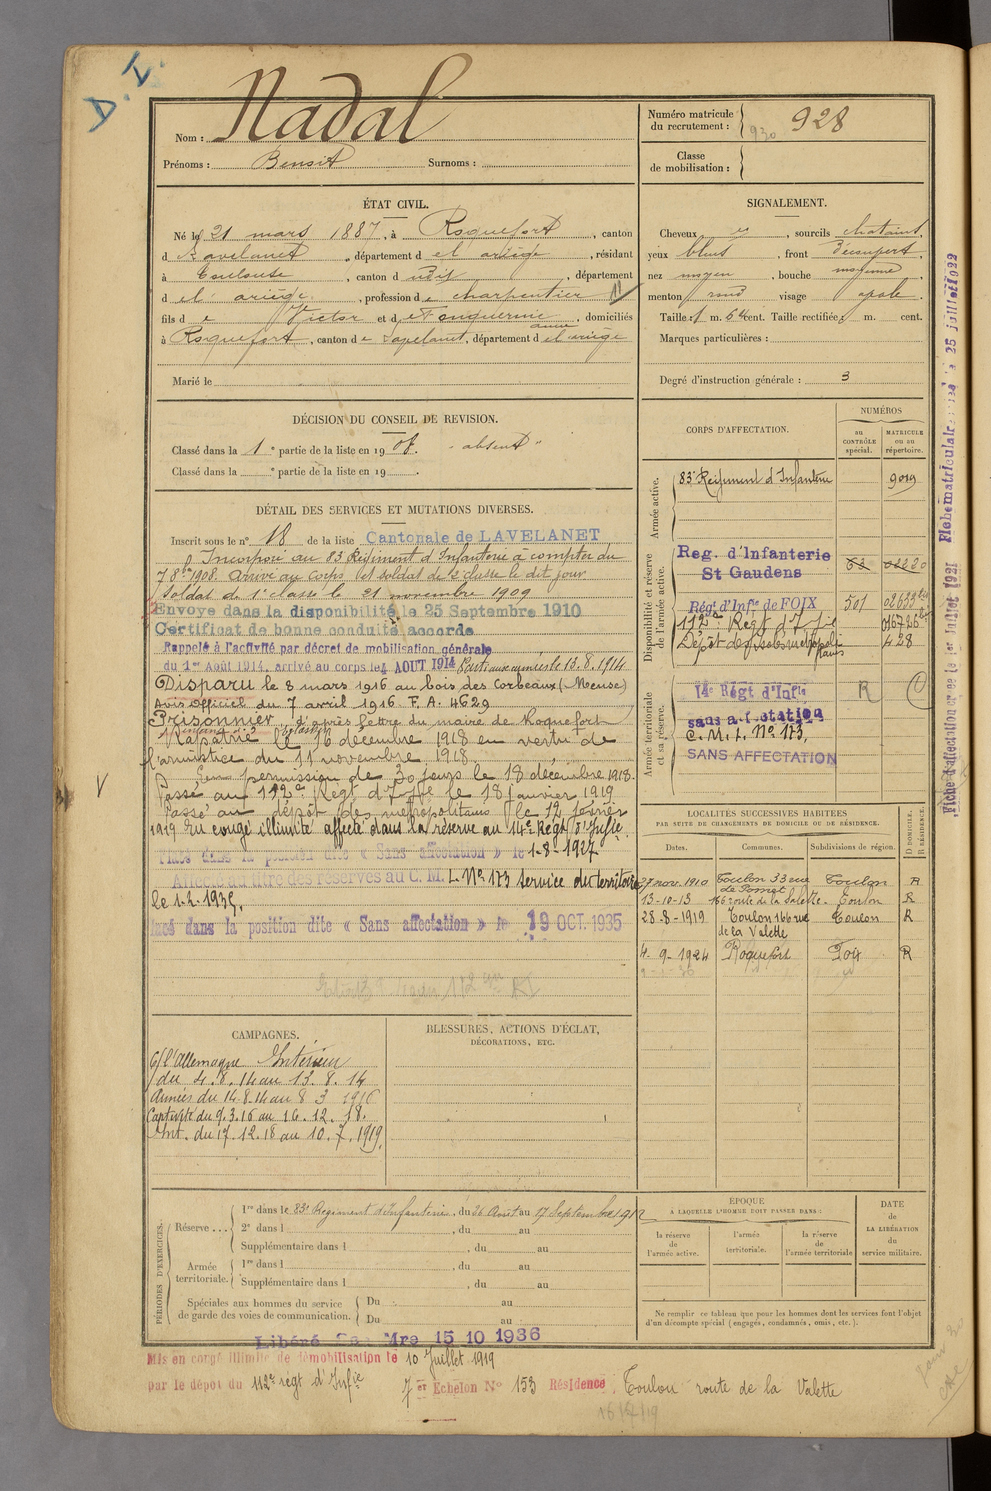 D. I.
Nom : Nadal
Prénoms : Benoit Surnoms :
Numéro matricule du recrutement : 930 928
Classe de mobilisation :
ÉTAT CIVIL.
Né le 21 mars 1887, à Roquefort, canton
d Lavelanet, département d el ariége, résidant
à Toulouse, canton d udit, département
d el' ariége, profession de charpentier 11
fils de Victor et d domiciliés
à Roquefort, canton de Lavelanet, département d el ariége
Marié le
SIGNALEMENT.
Cheveux et, sourcils chatains,
yeux bleus, front Découvert,
nez moyen, bouche moyenne
menton rond visage ovale.
Taille 1 m. 64 cent. Taille rectifiée : m. cent.
Marques particulières :
Degré d'instruction générale : 3
DÉCISION DU CONSEIL DE REVISION.
Classé dans la 1e partie de la liste en 1908. "absent"
Classé dans la e partie de la liste en 19 .
DÉTAIL DES SERVICES ET MUTATIONS DIVERSES.
Inscrit sous le n° 18 de la liste Cantonale de LAVELANET
Incorporé au 83 Régiment d'Infanterie à compter du
7 8bre 1908. Arrivé au Corps et soldat de 2e classe le dit jour
Soldat de 1e classe le 21 novembre 1909
Envoyé dans la disponibilité le 25 Septembre 1910
Certificat de bonne conduite accordé
Rappelé à l'activité par décret de mobilisation générale
du 1er Août 1914, arrivé au corps le 4 AOUT 1914 Parti aux armées le 13.8.1914
Disparu le 8 mars 1916 au bois des Corbeaux (Meuse)
Avis officiel du 7 avril 1916 F.A. 4629
Prisonnier, d'après lettre du maire de Roquefort
Rapatrié le 16 décembre 1918 en vertu de
l'armistice du 11 novembre 1918.
En permission de 30 jours le 18 décembre 1918.
Passé au 112e Régt d'Ifie le 18 janvier 1919
Passé au dépôt des métropolitains le 12 février
1919 En congé illimité affecté dans la réserve au 14e Régt d'Infie
Placé dans la position dite « Sans affectation » le 1-8-1927
Affecté au titre des réserves au C. M. L. No 173 Service du territoire
le 1-2-1935.
lacé dans la position dite « Sans affectation » le 19 OCT. 1935
CORPS D'AFFECTATION.
NUMÉROS
au CONTRÔLE spécial.
MATRICULE ou au répertoire.
Armée active.
83e Régiment d'Infanterie 9019
Disponibilité et réserve de l'armée active.
Reg. d'Infanterie St Gaudens 62
Régt d'Infie de FOIX 501
112e Régt d'Ifie
Dépôt des isolés métropolitains 428
Armée territoriale et sa réserve.
14e Régt d'Infie R
sans affectation
C. M. L. No 173,
SANS AFFECTATION
LOCALITÉS SUCCESSIVES HABITÉES
PAR SUITE DE CHANGEMENTS DE DOMICILE OU DE RÉSIDENCE.
Dates. Communes. Subdivisions de région. D DOMICILE. R RÉSIDENCE.
27 nov. 1910 Toulon 33 rue de Pomet Toulon R
13-10-13 166 route de la Valette. Toulon R
28-8-1919 Toulon 166 rue de la Valette Toulon R
4-9-1924 Roquefort Foix R
CAMPAGNES.
C/ l'Allemagne Intérieur
du 4.8.14 au 13.8.14
Armées du 14.8.14 au 8 3 1916
Captivité du 9.3.16 au 16.12.18.
Int. du 17.12.18 au 10.7.1919.
BLESSURES, ACTIONS D'ÉCLAT,
DÉCORATIONS, ETC.
PÉRIODES D'EXERCICES.
Réserve....
1re dans le 83e Régiment d'Infanterie, du 26 Août au 17 Septembre 1912
2e dans l , du au
Supplémentaire dans l , du au
Armée territoriale.
1re dans l , du au
Supplémentaire dans l , du au
Spéciales aux hommes du service de garde des voies de communication.
Du au
Du au
ÉPOQUE
À LAQUELLE L'HOMME DOIT PASSER DANS :
la réserve de l'armée active.
l'armée territoriale.
la réserve de l'armée territoriale
DATE de LA LIBÉRATION du service militaire.
Ne remplir ce tableau que pour les hommes dont les services font l'objet
d'un décompte spécial (engagés, condamnés, omis, etc.).
Libéré Ser Mre 15 10 1936
Mis en congé illimité de démobilisation le 10 Juillet 1919
par le dépôt du 112e régt d'Infie 7er Echelon No 153 Résidence : Toulon route de la Valette